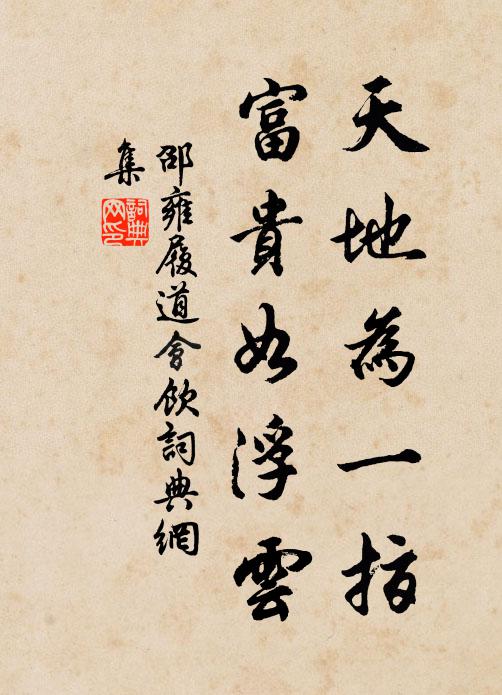 天地為一指
富貴如浮雲
邵雍履道會飲詞典網
集
詞典
网印